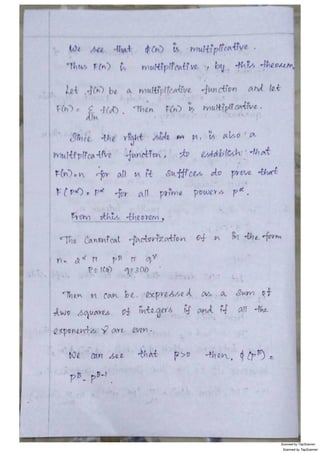 We see that ϕ(n) is multiplicative.
Thus F(n) is multiplicative, by this theorem
Let f(n) be a multiplicative function and let
F(n) = Σ f(d). Then F(n) is multiplicative.
d|n
Since the right side n, is also a
multiplicative function, to establish that
F(n)=n for all n it suffices to prove that
F(pα) = pα for all prime powers pα.
From this theorem,
The Canonical factorization of n in the form
n = 2α π pβ π qγ
p≡1(4) q≡3(4)
Then n can be expressed as a sum of
two squares of integers if and if all the
exponents γ are even.
We can see that β>0 then, ϕ(pβ) =
pβ - pβ-1.
Scanned by TapScanner
Scanned by TapScanner